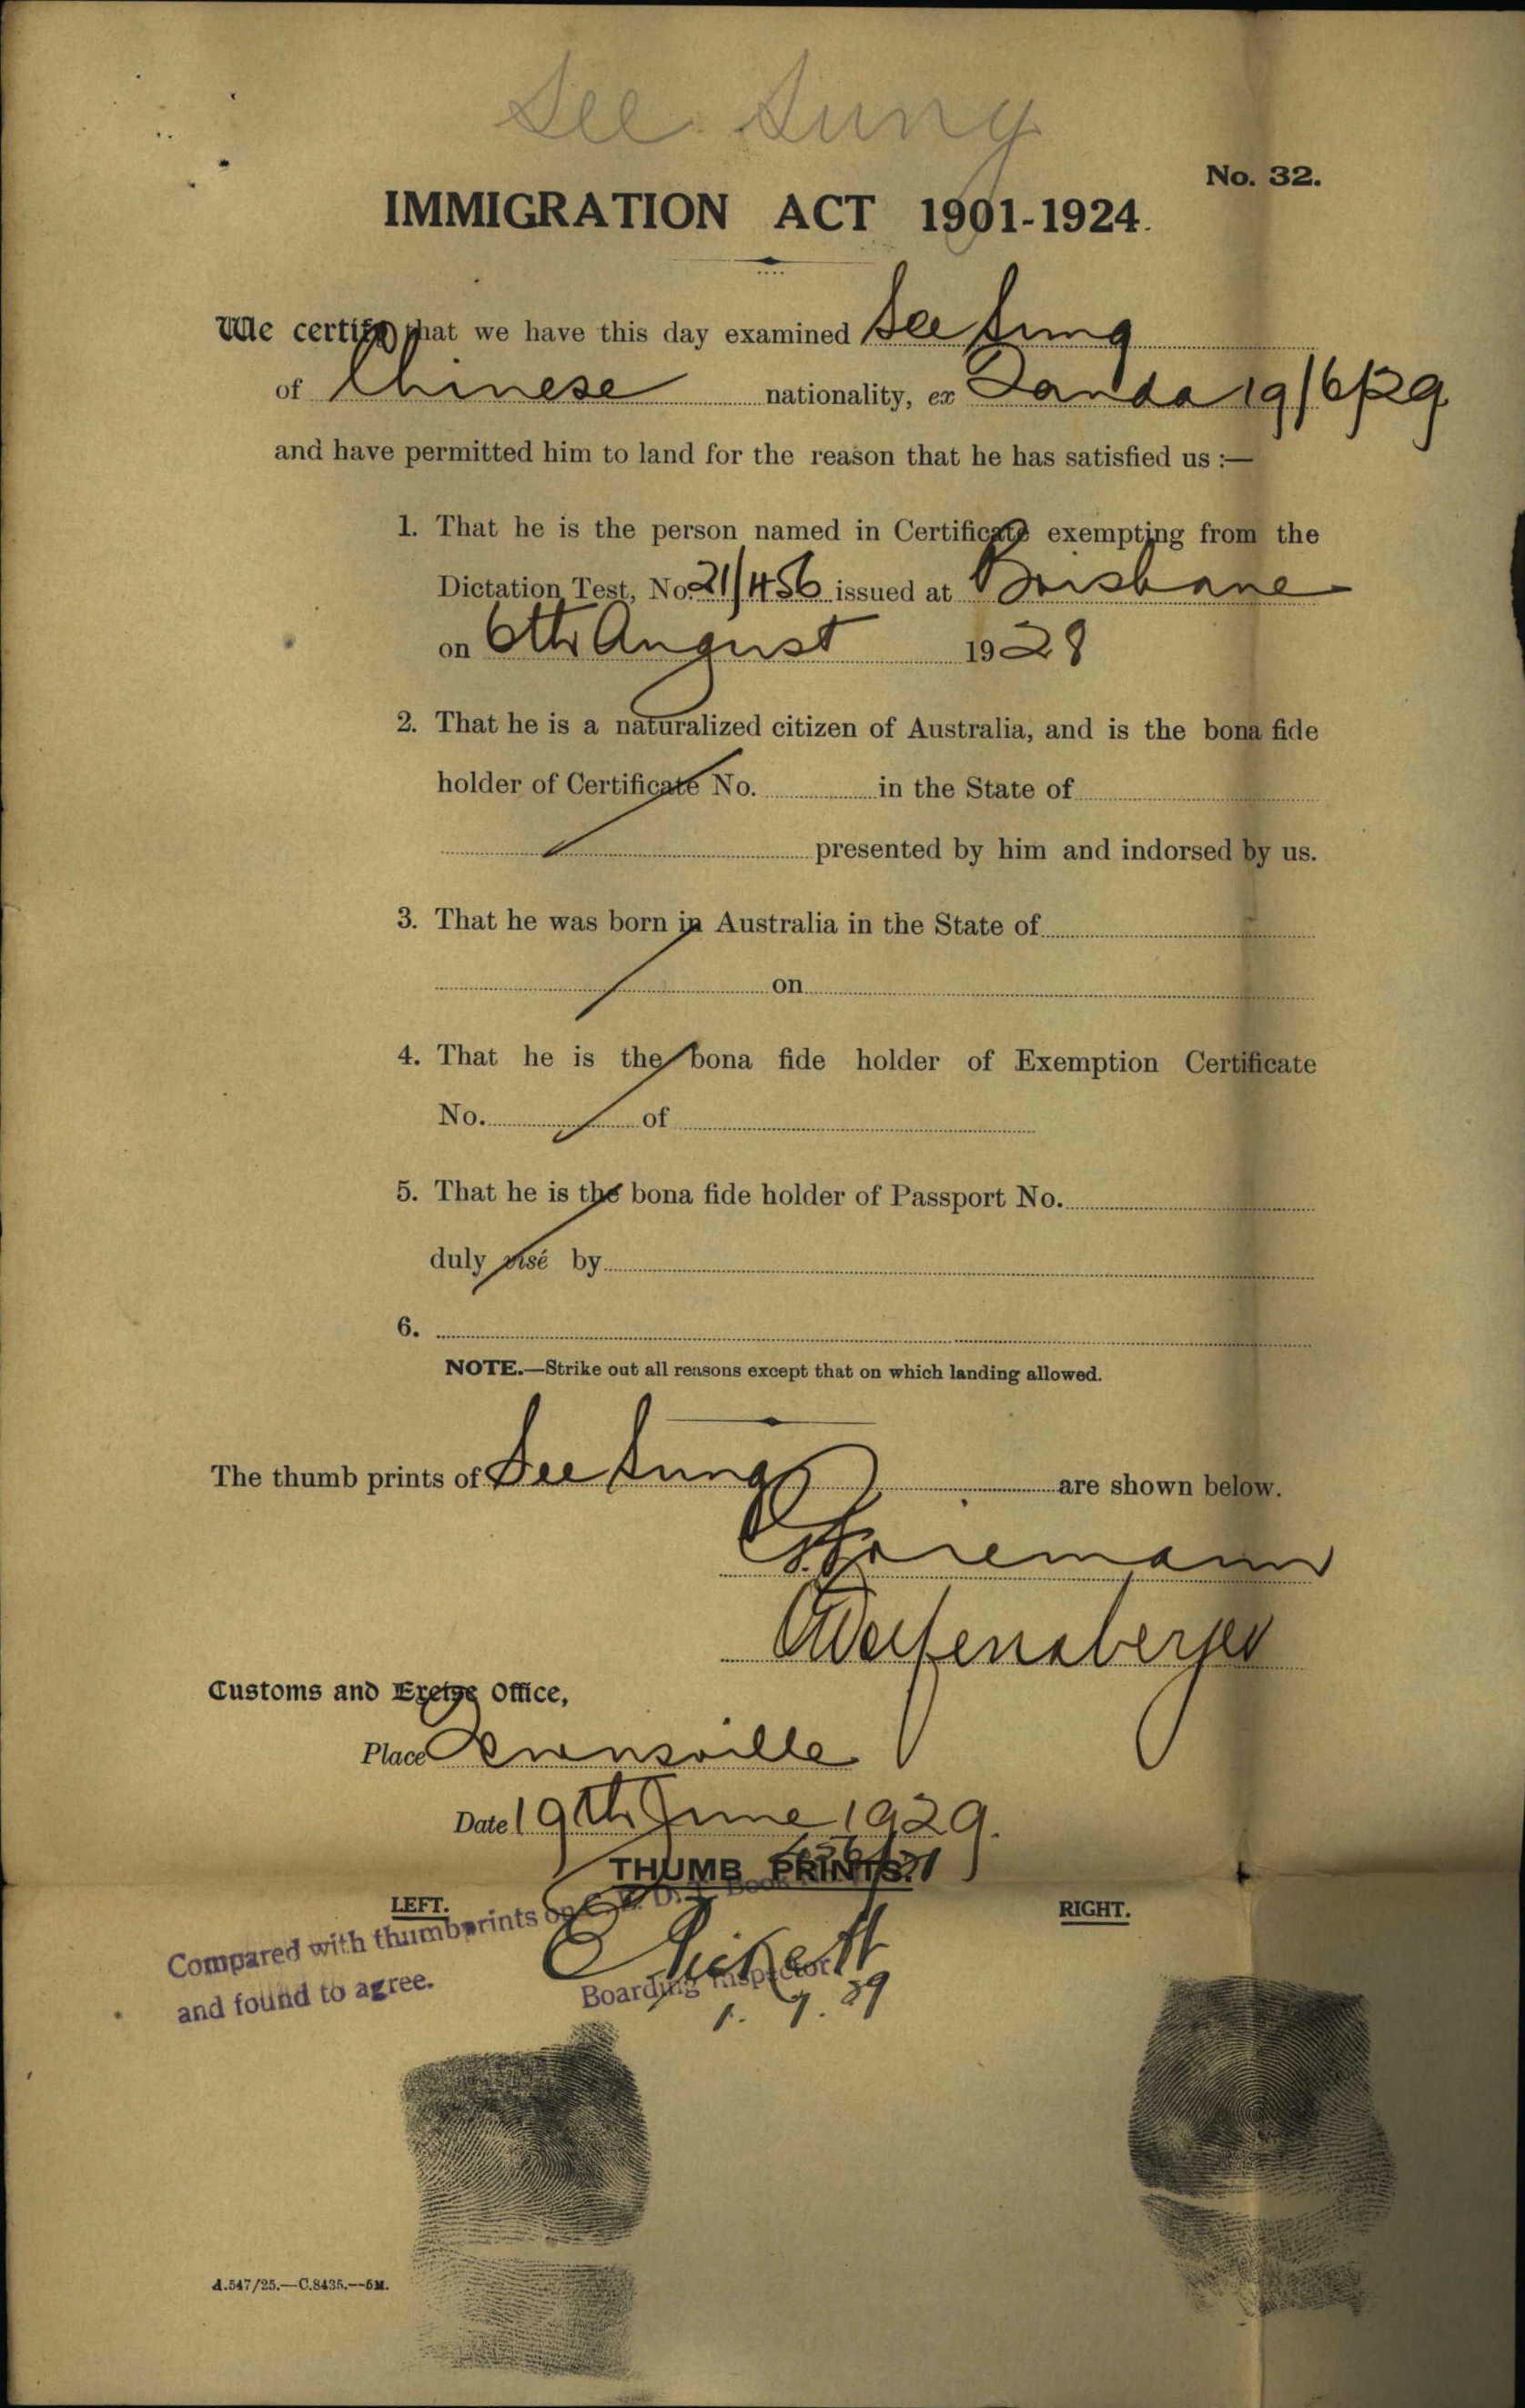 See Sung
No. 32.
IMMIGRATION ACT 1901-1924.
We certify that we have this day examined See Sung
of Chinese nationality, ex Tanda 19/6/29
and have permitted him to land for the reason that he has satisfied us :—
1. That he is the person named in Certificate exempting from the
Dictation Test, No. 21/456 issued at Brisbane
on 6th August 1928
2. That he is a naturalized citizen of Australia, and is the bona fide
holder of Certificate No. in the State of
presented by him and indorsed by us.
3. That he was born in Australia in the State of
on
4. That he is the bona fide holder of Exemption Certificate
No. of
5. That he is the bona fide holder of Passport No.
duly visé by
6.
NOTE.—Strike out all reasons except that on which landing allowed.
The thumb prints of See Sung are shown below.
Customs and Excise Office,
Place Townsville
Date 19th June 1929.
THUMB PRINTS.
456/21
LEFT.
RIGHT.
Compared with thumbprints on C. E. D. T. Book
and found to agree.
Boarding Inspector
1. 7. 29
A.547/25.—C.8435.—5M.